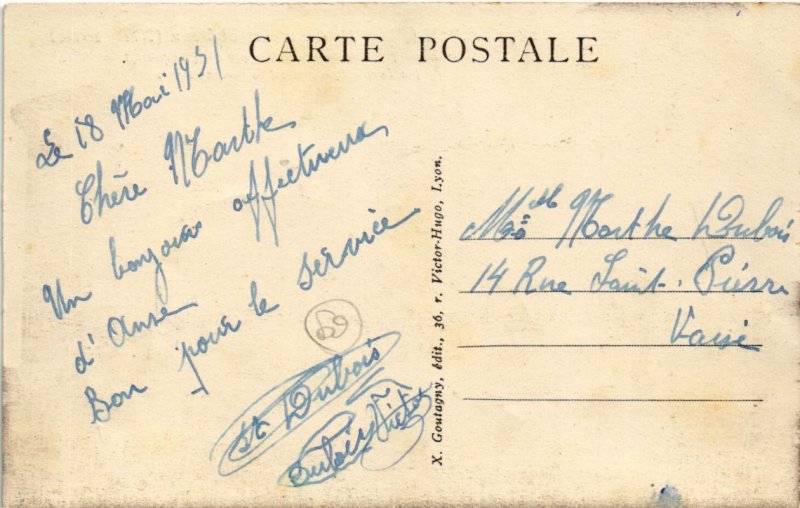 CARTE POSTALE
Le 18 Mai 1931
Chère Marthe
Un bonjour affectueux
d'Anse
Bon pour le service
Dubois
Victor
X. Goutagny, édit., 36, r. Victor-Hugo, Lyon.
Melle Marthe Dubois
14 Rue Saint-Pierre
Vaise